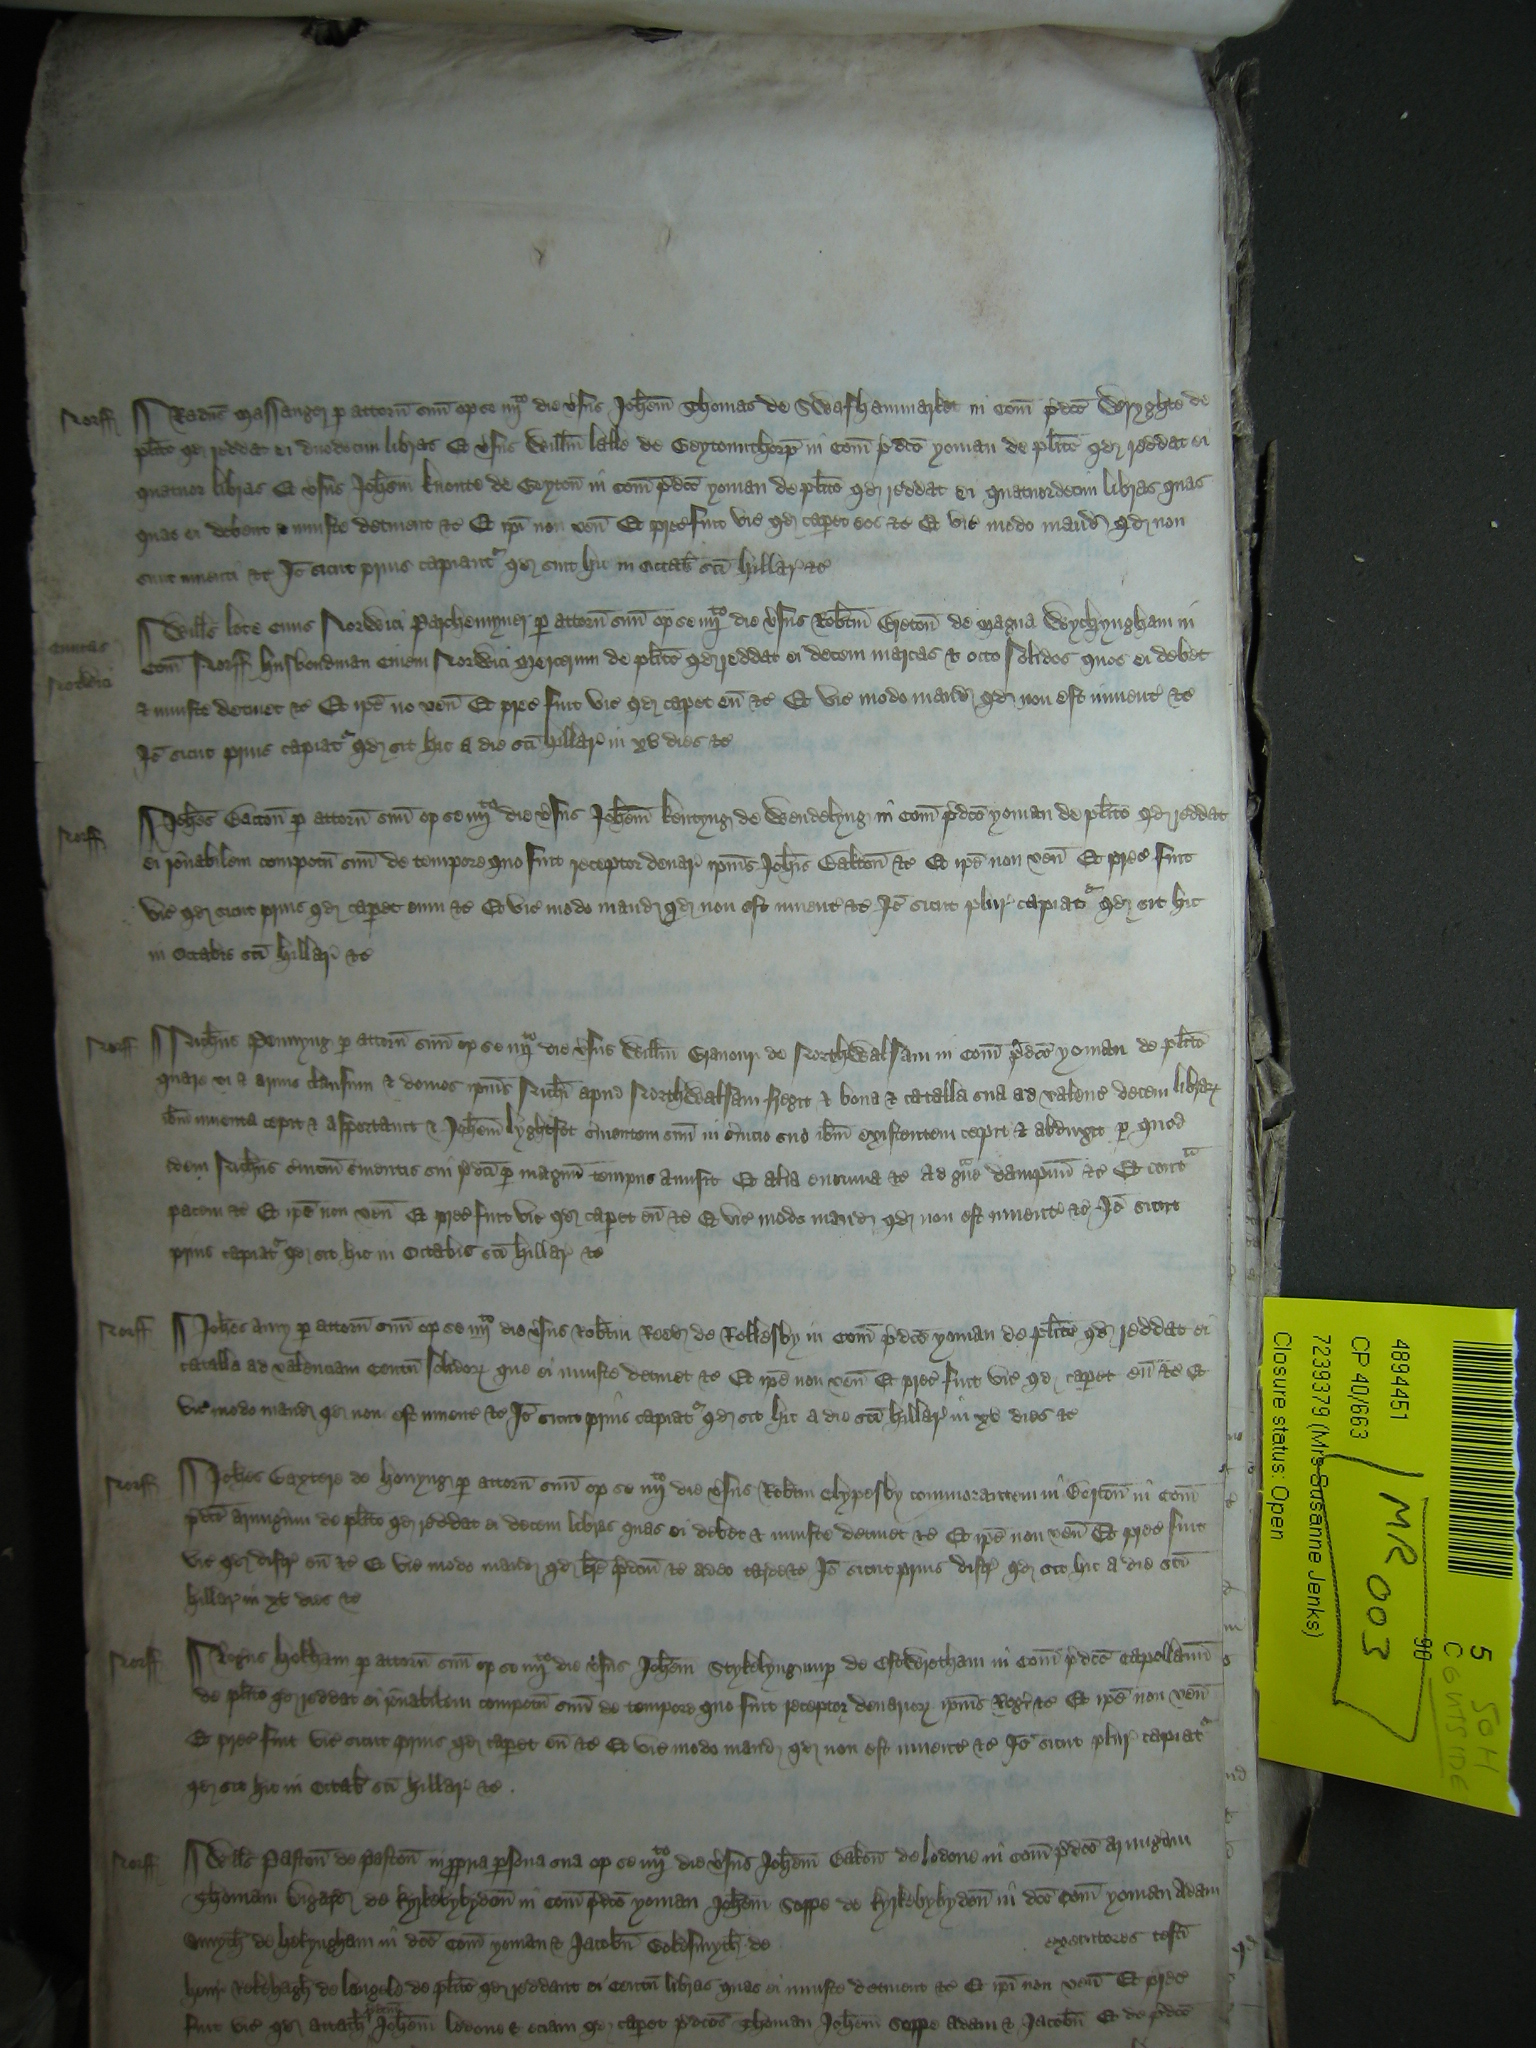 Norff Radus Massanger p attorn suu op se iiijto die vsus Johem Thomas de Swafhammarket in Com pdco Wryghte de
plito qd reddat ei duodecim libras Et vsus Willm lalle de Geytonnthorp in Com pdco yoman de plito qd reddat ei
quatuor libras Et vsus Johem knotte de Geyton in Com pdco yoman de plito qd reddat ei quatuordecim libras quas
quas ei debent & iniuste detinent &c Et ipi non ven Et prec fuit vic qd caperet eos &c Et vic modo mand qd non
sunt inuenti &c Io sicut prius capiantr qd sint hic in Octab sci Hillar &c
Ciuitas
Norwici
Wills lote Ciuis Norwici Parchemyner p attorn suu op se iiijto die vsus Robtm Greton de magna Wychyngham in
Com Norff husbondman Ciuem Norwici mercerum de plito qd reddat ei decem marcas & octo solidos quos ei debet
& iniuste detinet &c Et ipe no ven Et prec fuit vic qd caperet eu &c Et vic modo mand qd non est inuent &c
Io sicut prius capiatr qd sit hic a die sci Hillar in xv dies &c
Norff Johes Bacton p attorn suu op se iiijto die vsus Johem kentyng de Wendelyng in Com pdco yoman de plito qd reddat
ei ronabilem compotu suu de tempore quo fuit receptor denar ipius Johis Bakton &c Et ipe non ven Et prec fuit
vic qd sicut prius qd caperet eum &c Et vic modo mand qd non est inuent &c Io sicut plur capiatr qd sit hic
in Octabis sci Hillar &c
Norff Ricus Pennyng p attorn suu op se iiijto die vsus Willm Granour de Northwalsam in Com pdco yoman de plito
quare vi & armis clausum & domos ipius Rici apud Northwalsam fregit & bona & catalla sua ad valenc decem librar
ibm inuenta cepit & asportauit & Johem lyghtfot seruientem suu in seruicio suo ibm existentem cepit & abduxit p quod
idem Ricus seruiciu seruientis sui pdci p magnu tempus amisit Et alia enormia &c Ad graue dampnu &c Et contra
pacem &c Et ipe non ven Et prec fuit vic qd caperet eu &c Et vic modo mand qd non est inuent &c Io sicut
prius capiatr qd sit hic in Octabis sci Hillar &c
Norff Johes amy p attorn suu op se iiijto die vsus Robtm Reve de Rollesby in Com pdco yoman de plito qd reddat ei
catalla ad valenciam Centu solidor que ei iniuste detinet &c Et ipe non ven Et prec fuit vic qd caperet eu &c Et
vic modo mand qd non est inuent &c Io sicut prius capiatr qd sit hic a die sci Hillar in xv dies &c
Norff Johes Baxtere de honyng p attorn suu op se iiijto die vsus Robtm Clypesby commorantem in in Com
pdco armigum de plito qd reddat ei decem libras quas ei debet & iniuste detinet &c Et ipe non ven Et prec fuit
vic qd distr eu &c Et vic modo mand qd bre pdcm &c adeo tarde &c Io sicut prius distr qd sit hic a die sci
Hillar in xv dies &c
Norff Rogus Holkham p attorn suu op se iiijto die vsus Johem nup de Estwretham in Com pdco Capellanu
de plito qd reddat ei ronabilem compotu suu de tempore quo fuit receptor denarior ipius Rogi &c Et ipe non ven
Et prec fuit vic sicut prius qd caperet eu &c Et vic modo mand qd non est inuent &c Io sicut plur capiatr
qd sit hic in Octab sci Hillar &c .
Norff Wills Paston de Paston in ppria psona sua op se iiijto die vsus Johem Bakon de lodone in Com pdco armigum
Thomam de kyrkebybydon in Com pdco yoman Johem Soppe de kyrkebybydon in dco Com yoman Adam
Smyth de helyngham in dco Com yoman & Jacobu Goldsmyth de executores testi
de plito qd reddant ei Centu libras quas ei iniuste detinent &c Et ipi non ven Et prec
fuit vic qd attach pdcm Johem lodone & eciam qd caperet pdcos Thomam Johem Soppe Adam & Jacobu Et de pdco
4894451
CP 40/663
7239379 (Mrs Susanne Jenks)
Closure status: Open
MR 003
5
C
90
SOH
OUTSIDE